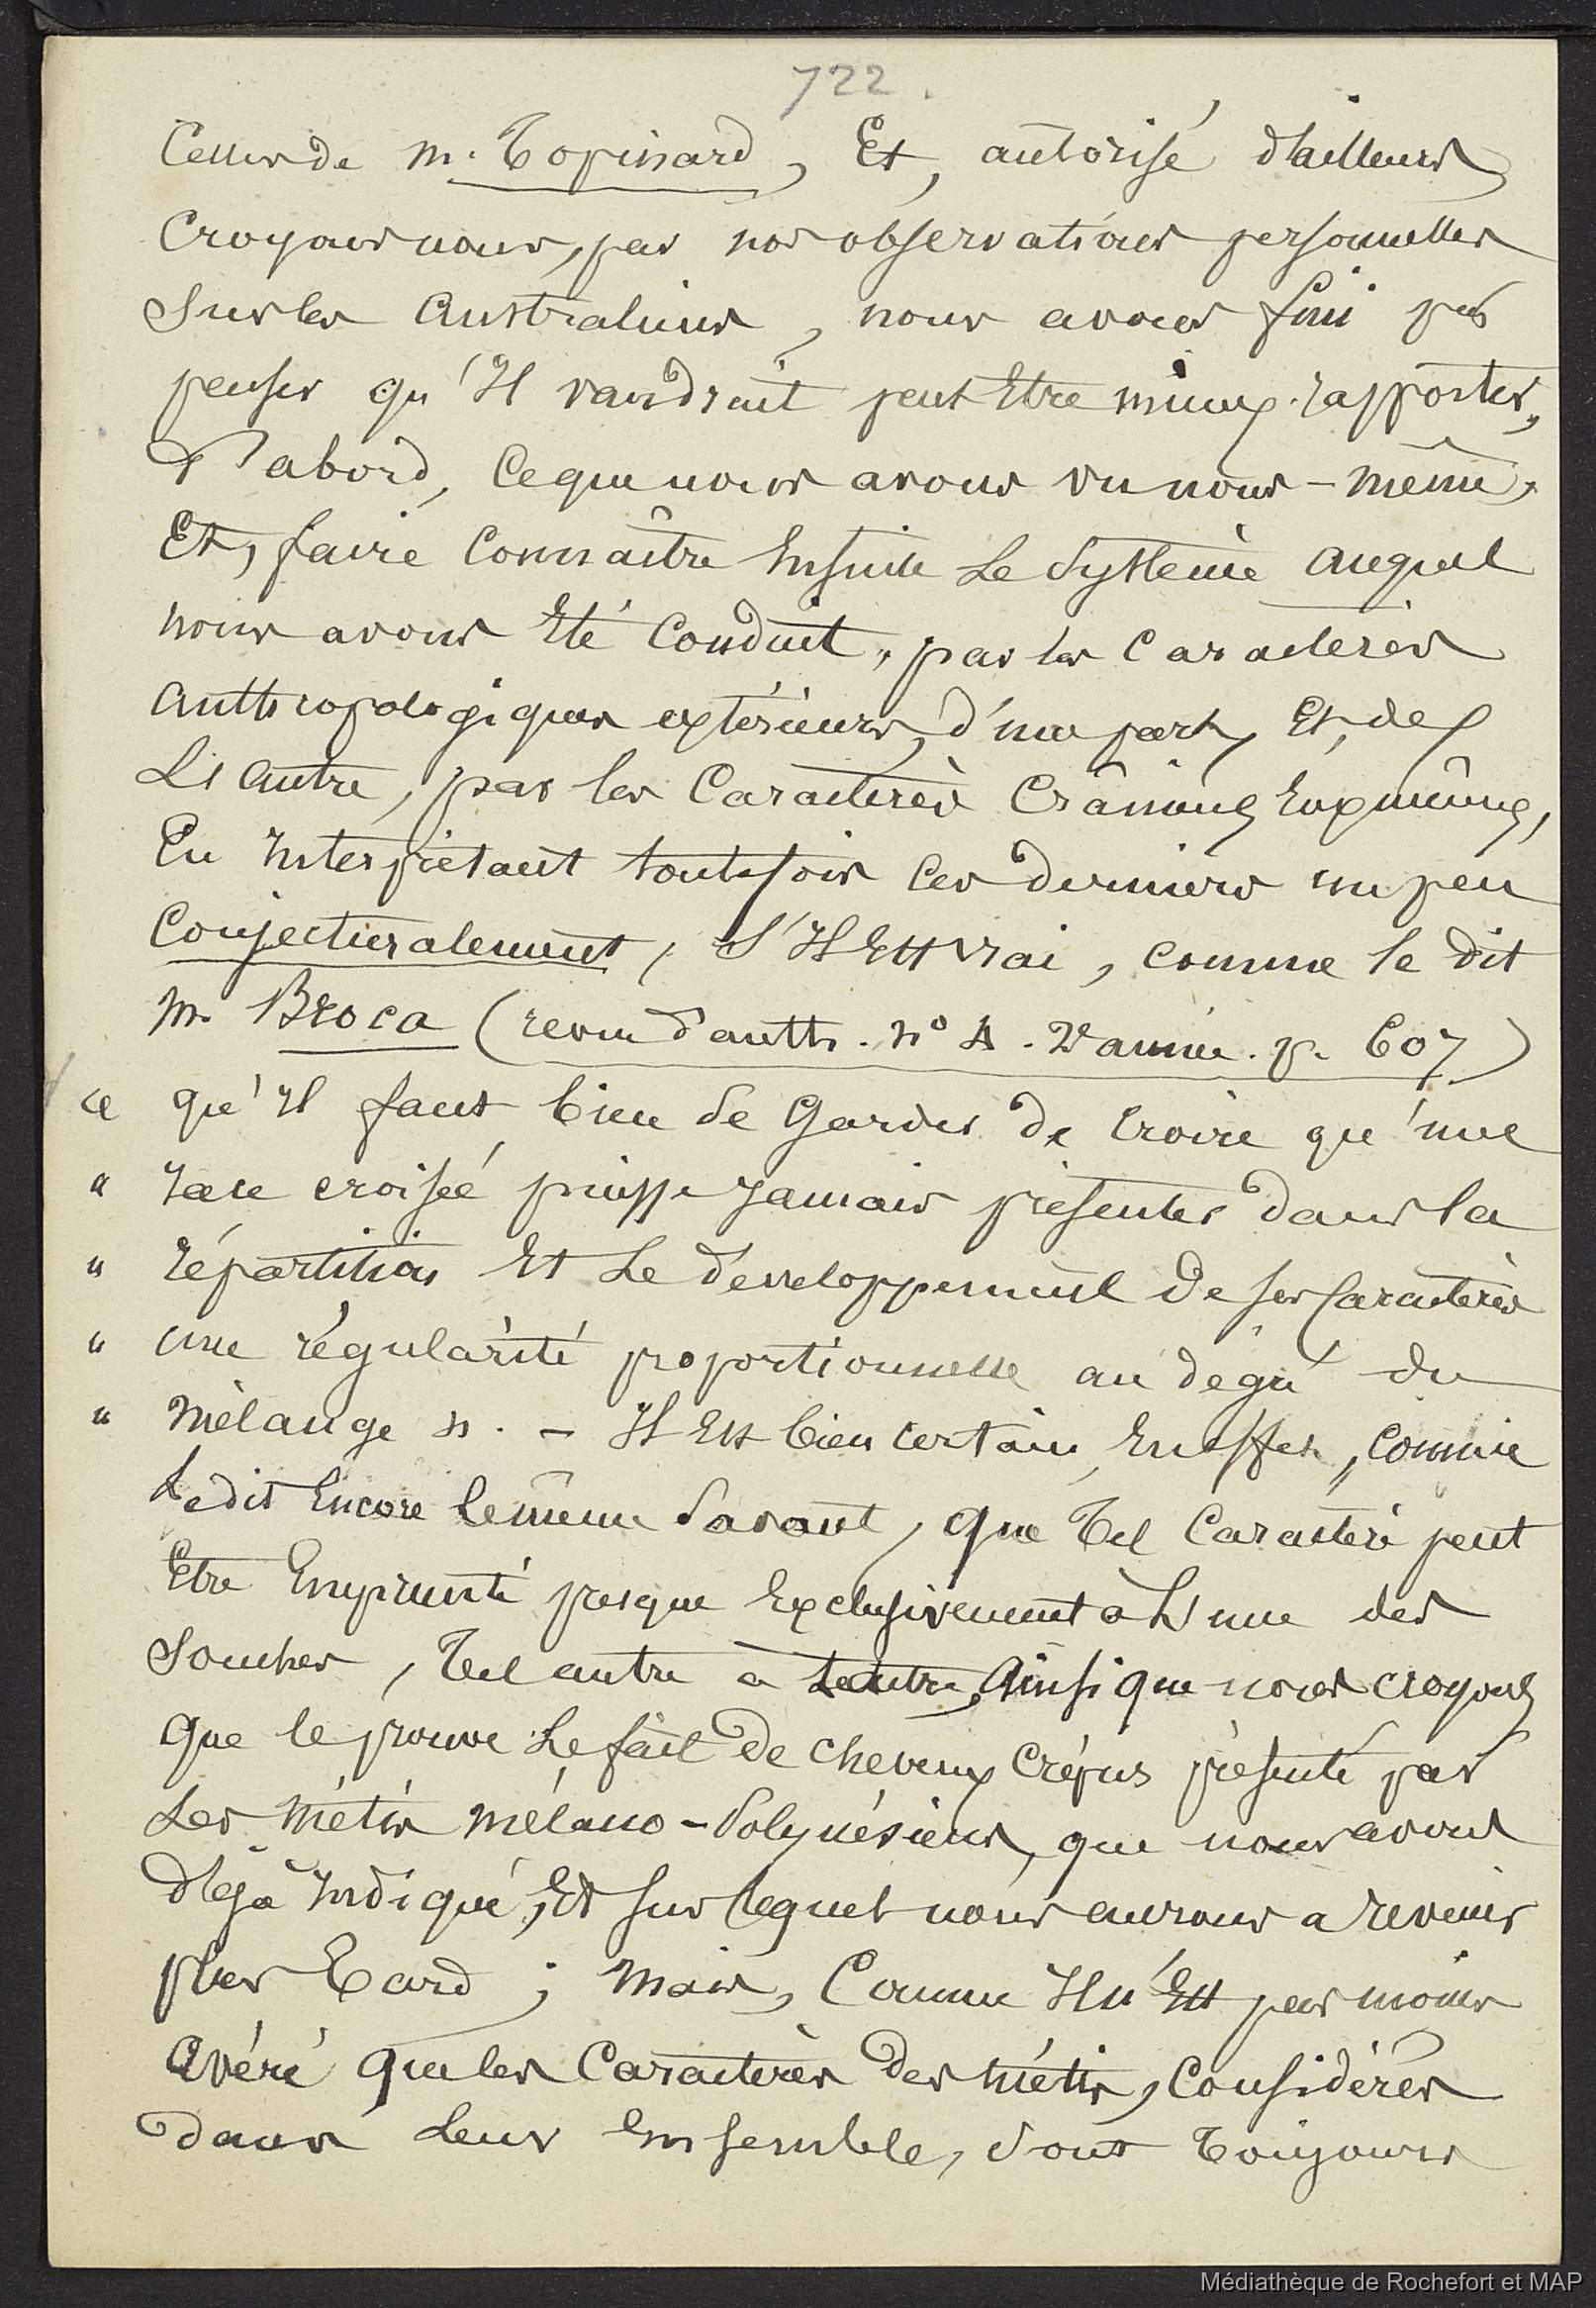 722.
Celles de M. Topinard, Et, autorisé d'ailleurs
Croyons nous, par nos observations personnelles
Sur les Australiens, nous avons fini par
penser qu'Il vaudrait peut Etre mieux rapporter,
d'abord, Ce que nous avons vu nous-même,
Et, faire Connaître Ensuite Le Système auquel
nous avons Eté Conduit, par les Caractères
Anthropologiques extérieurs, d'une part, Et, de
L'autre, par les Caractères Crâniens Eux mêmes,
En Interprétant toutefois Ces derniers un peu
Conjecturalement, S'Il Est vrai, comme le dit
M. Broca (revue d'anth. n° 4. 2e année. p. 607)
"qu'Il faut bien Se Garder de Croire qu'une
" race croisée puisse Jamais présenter dans la
" répartition Et Le développement de ses Caractères
" une régularité proportionnelle au degré du
" Mélange ". - Il Est bien Certain, En effet, Comme
Le dit Encore le même Savant, que Tel Caractère peut
Etre Emprunté presque Exclusivement à L'une des
Souches, Tel autre à L'autre, Ainsi que nous croyons
que le prouve Le fait de cheveux Crépus présenté par
Les Métis Mélano-Polynésiens, que nous avons
déjà Indiqué, Et sur lequel nous aurons à revenir
plus Tard; Mais, Comme Il n'Est pas moins
Avéré que les Caractères des Métis, Considérés
dans Leur Ensemble, Sont Toujours
Médiathèque de Rochefort et MAP